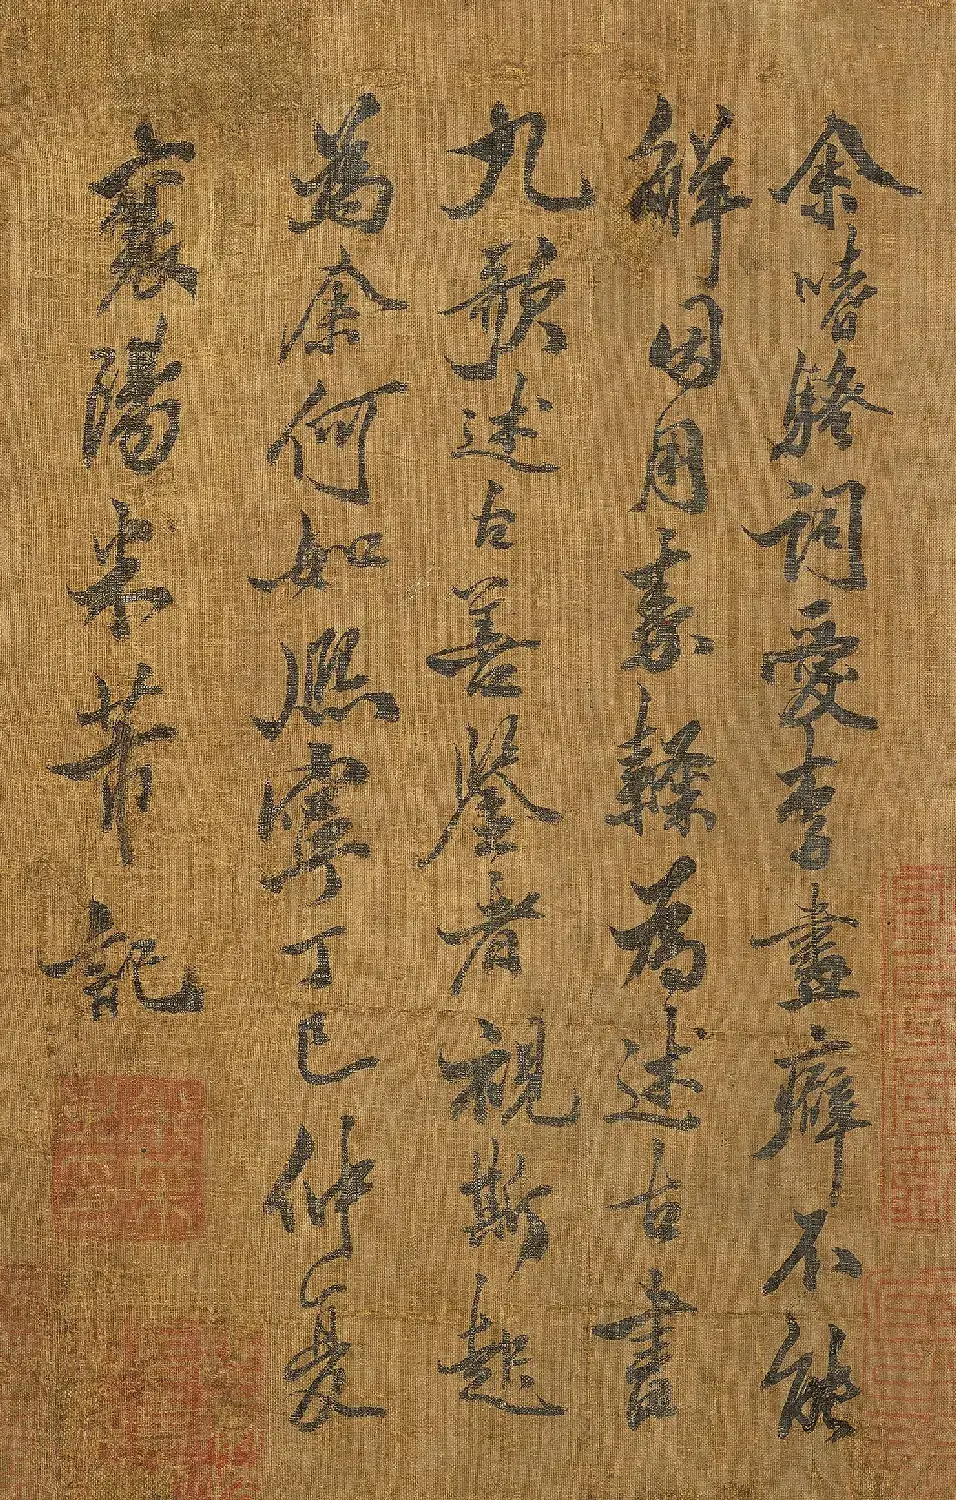 余嗜騷詞愛李畫癖不能
解因用素為述古書
九歌述古善鑒者視斯
為余何如熙寧丁巳仲夏
襄陽米芾記